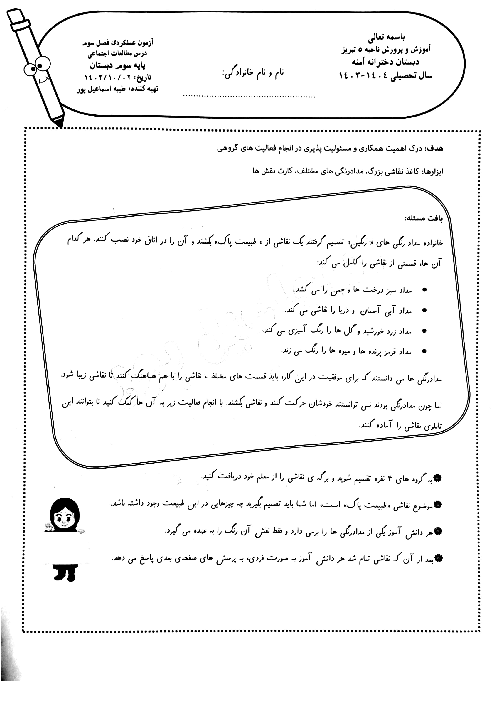 باسمه تعالی
آموزش و پرورش ناحیه ۵ تبریز
دبستان دخترانه آمنه
سال تحصیلی ۱۴۰۴-۱۴۰۳
نام و نام خانوادگی:
آزمون عملکردی فصل سوم
درس مطالعات اجتماعی
پایه سوم دبستان
تاریخ: ۱۴۰۳/۱۰/۰۲
تهیه کننده: طیبه اسماعیل پور
هدف: درک اهمیت همکاری و مسئولیت پذیری در انجام فعالیت های گروهی
ابزارها: کاغذ نقاشی بزرگ، مدادرنگی های مختلف، کارت نقش ها
بافت مسئله:
خانواده مداد رنگی های « رنگین» تصمیم گرفتند یک نقاشی از « طبیعت پاک» بکشند و آن را در اتاق خود نصب کنند. هر کدام
آن ها، قسمتی از نقاشی را کامل می کند:
• مداد سبز درخت ها و چمن را می کشد.
• مداد آبی آسمان و دریا را نقاشی می کند.
• مداد زرد خورشید و گل ها را رنگ آمیزی می کند.
• مداد قرمز پرنده ها و میوه ها را رنگ می زند.
مدادرنگی ها می دانستند که برای موفقیت در این کار، باید قسمت های مختلف نقاشی را با هم هماهنگ کنند تا نقاشی زیبا شود.
اما چون مدادرنگی بودند نمی توانستند خودشان حرکت کنند و نقاشی بکشند. با انجام فعالیت زیر به آن ها کمک کنید تا بتوانند این
تابلوی نقاشی را آماده کنند.
به گروه های ۴ نفره تقسیم شوید و برگه ی نقاشی را از معلم خود دریافت کنید.
موضوع نقاشی «طبیعت پاک» است، اما شما باید تصمیم بگیرید چه چیزهایی در این طبیعت وجود داشته باشد.
هر دانش آموز یکی از مدادرنگی ها را برمی دارد و فقط نقش آن رنگ را به عهده می گیرد.
بعد از آن که نقاشی تمام شد هر دانش آموز به صورت فردی، به پرسش های صفحه‌ی بعدی پاسخ می دهد.